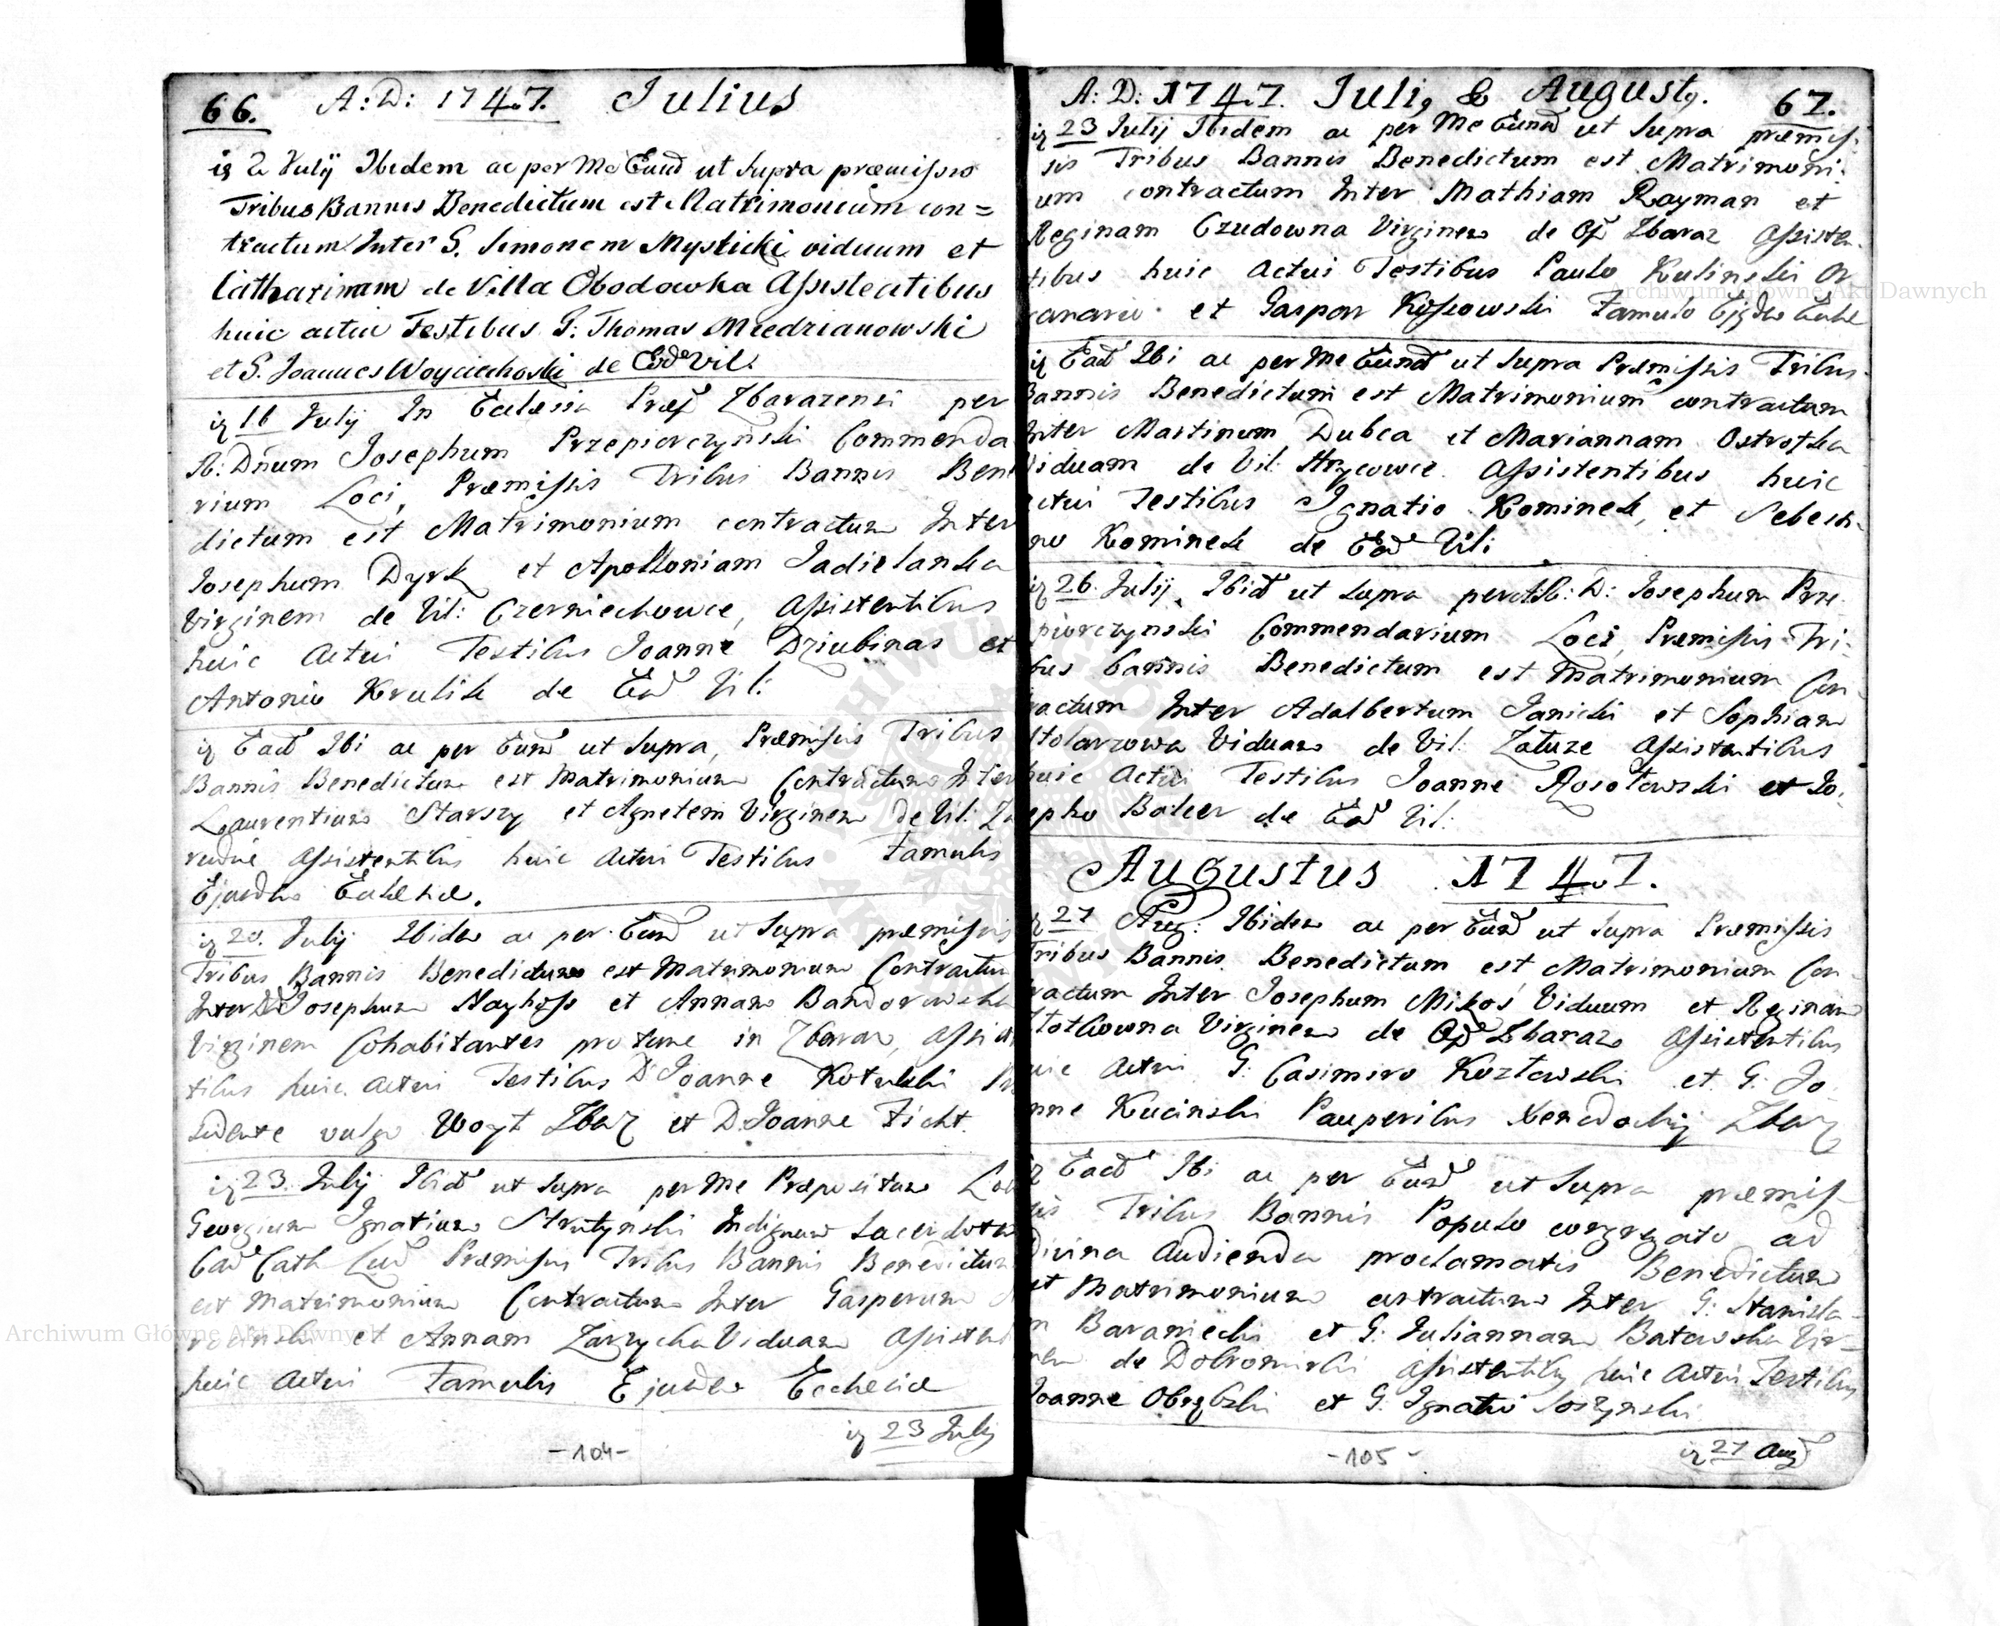 66. A: D: 1747. Julius
is 2 July Ibidem ac per Me Eund ut Supra præmissis
Tribus Bannis Benedictum est Matrimonium con=
tractum Inter G. Simonem Myslicki viduum et
Catharinam de Villa Obodowka Assistentibus
huic actui Testibus G: Thomas Miedzianowski
et G. Joannes Woyciechoski de Eod Vil:
16 July In Ecclesia Præf Zbarazensi per
R: Dnum Josephum Przepiorczynski Commenda
rium Loci, Præmissis Tribus Bannis Ben
dictum est Matrimonium contractum Inter
Josephum Dyrk et Apolloniam Jadielanka
Virginem de Vil: Czerniechowce, Assistentibus
huic Actui Testibus Joanne Dziubinas et
Antonio Krulik de Ead Vil:
Ead Ibi ac per Eund ut Supra, Præmissis Tribus
Bannis Benedictum est Matrimonium Contractum Inter
Laurentium Starszy et Agnetem Virginem de Vil: Za
rudie Assistentibus huic Actui Testibus Famulis
Ejusdem Ecclesiæ.
20. July Ibidem ac per Eund ut Supra præmissis
Tribus Bannis Benedictum est Matrimonium Contractum
Inter D Josephum Nayhoff et Annam Bandorowska
Virginem Cohabitantes pro tunc in Zbaraz, Assist
tibus huic Actui Testibus D Joanne Kotulski
sidente vulgo Woyt Zbar et D. Joanne Ficht.
23. July Ibid ut Supra per Me Præpositum Loci
Georgium Ignatium Strutynski Indignum Sacerdotem
Cath Præmissis Tribus Bannis Benedictum
est Matrimonium Contractum Inter Gasparum
et Annam Zarzycka Viduam Assisten
huic Actui Famulis Ejusdem Ecclesiæ
23 July
-104-
A: D: 1747. Julij & August9. 67.
23 July Ibidem ac per Me Eund ut Supra præmis-
sis Tribus Bannis Benedictum est Matrimoni-
um contractum Inter Mathiam Rayman et
Reginam Czudowna Virginem de Op Zbaraz Assisten-
tibus huic Actui Testibus Paulo Kulinski Or
ganario et Gaspar Kossowski Famulo Ejsdem Eccl
Ead Ibi ac per Me Eund ut Supra Præmissis Tribus
Bannis Benedictum est Matrimonium contractum
Inter Martinum Dubea et Mariannam Ostrowska
Viduam de Vil: Hrycowce Assistentibus huic
Actui Testibus Ignatio Kominek, et Sebesti-
no Kominek de Ead Vil:
26. July, Ibid ut Supra per R: D: Josephum Prze-
piorczynski Commendarium Loci, Præmissis Tri-
bus bannis Benedictum est Matrimonium Con-
tractum Inter Adalbertum Janicki et Sophiam
Stolarzowa Viduam de Vil: Załuze Assistentibus
huic Actui Testibus Joanne Rosołowski et Jo-
sepho Balcer de Ead Vil:
Augustus 1747.
27 Aug: Ibidem ac per Eund ut Supra Præmissis
Tribus Bannis Benedictum est Matrimonium Con-
tractum Inter Josephum Mikos Viduum et Reginam
Virginem de Op Zbaraz Assistentibus
huic Actui G: Casimiro Kozłowski et G: Jo
nne Kucinski Pauperibus Xenodochij Zbar
Ead Ibi ac per Eund ut Supra præmis-
sis Tribus Bannis Populo congregato ad
Divina Audienda proclamatis Benedictum
est Matrimonium contractum Inter G: Stanisla-
m Baraniecki et G: Juliannam Batowska Vir-
nem de Dobromirki Assistentibus huic Actui Testibus
Joanne Obrębski et G: Ignatio Soszynski
27 Aug
-105-
Archiwum Główne Akt Dawnych
Archiwum Główne Akt Dawnych